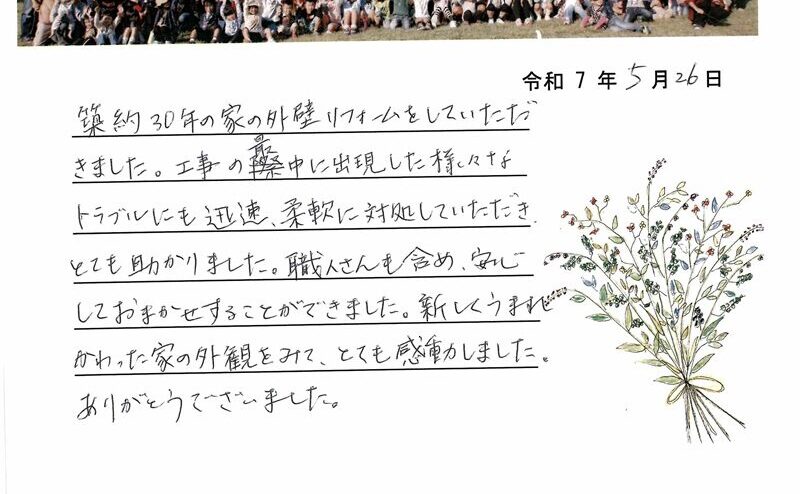 令和 7 年 5 月 26 日
築約30年の家の外壁リフォームをしていただ
きました。工事の最中に出現した様々な
トラブルにも迅速、柔軟に対処していただき、
とても助かりました。職人さんも含め、安心
しておまかせすることができました。新しくうまれ
かわった家の外観をみて、とても感動しました。
ありがとうございました。